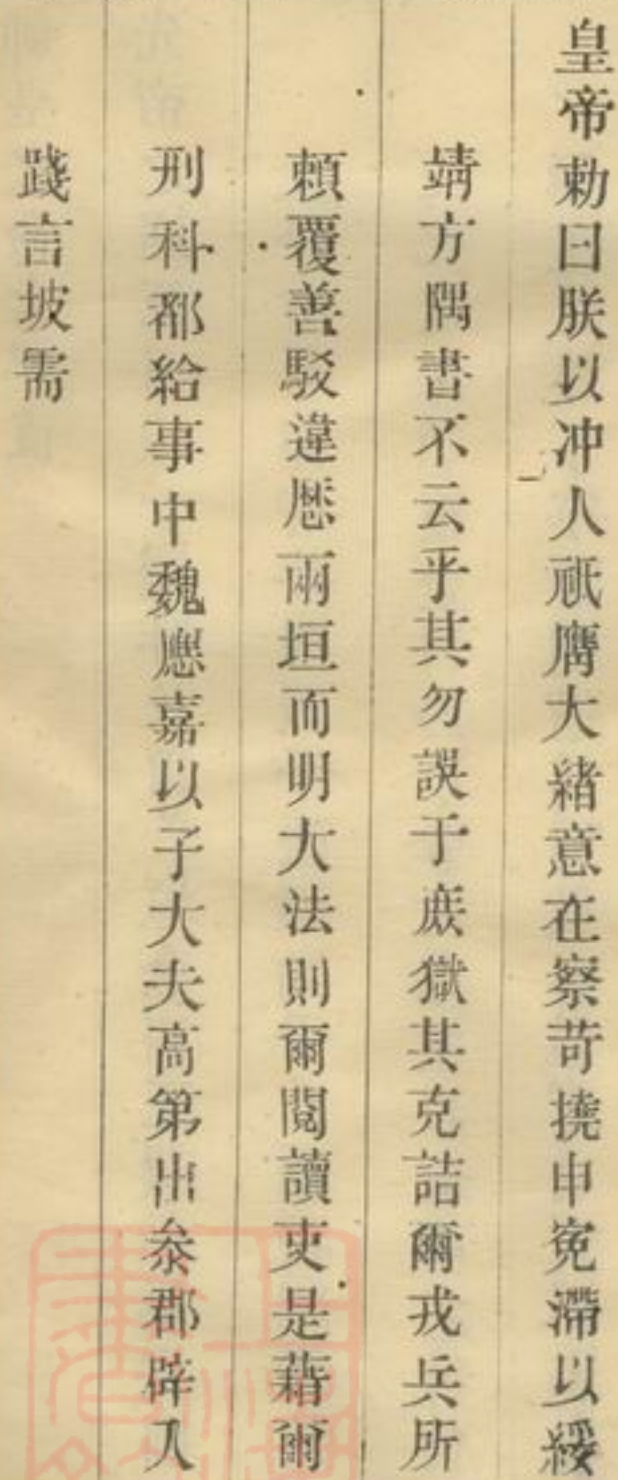 皇帝勅曰朕以冲人祇膺大緒意在察苛撓申寃滯以綏
靖方隅書不云乎其勿誤于庶獄其克詰爾戎兵所
頼覆善駁違懸兩垣而明大法則爾閱讀吏是藉爾
刑科都給事中魏應嘉以子大夫高第出叅郡辟入
踐言坡需